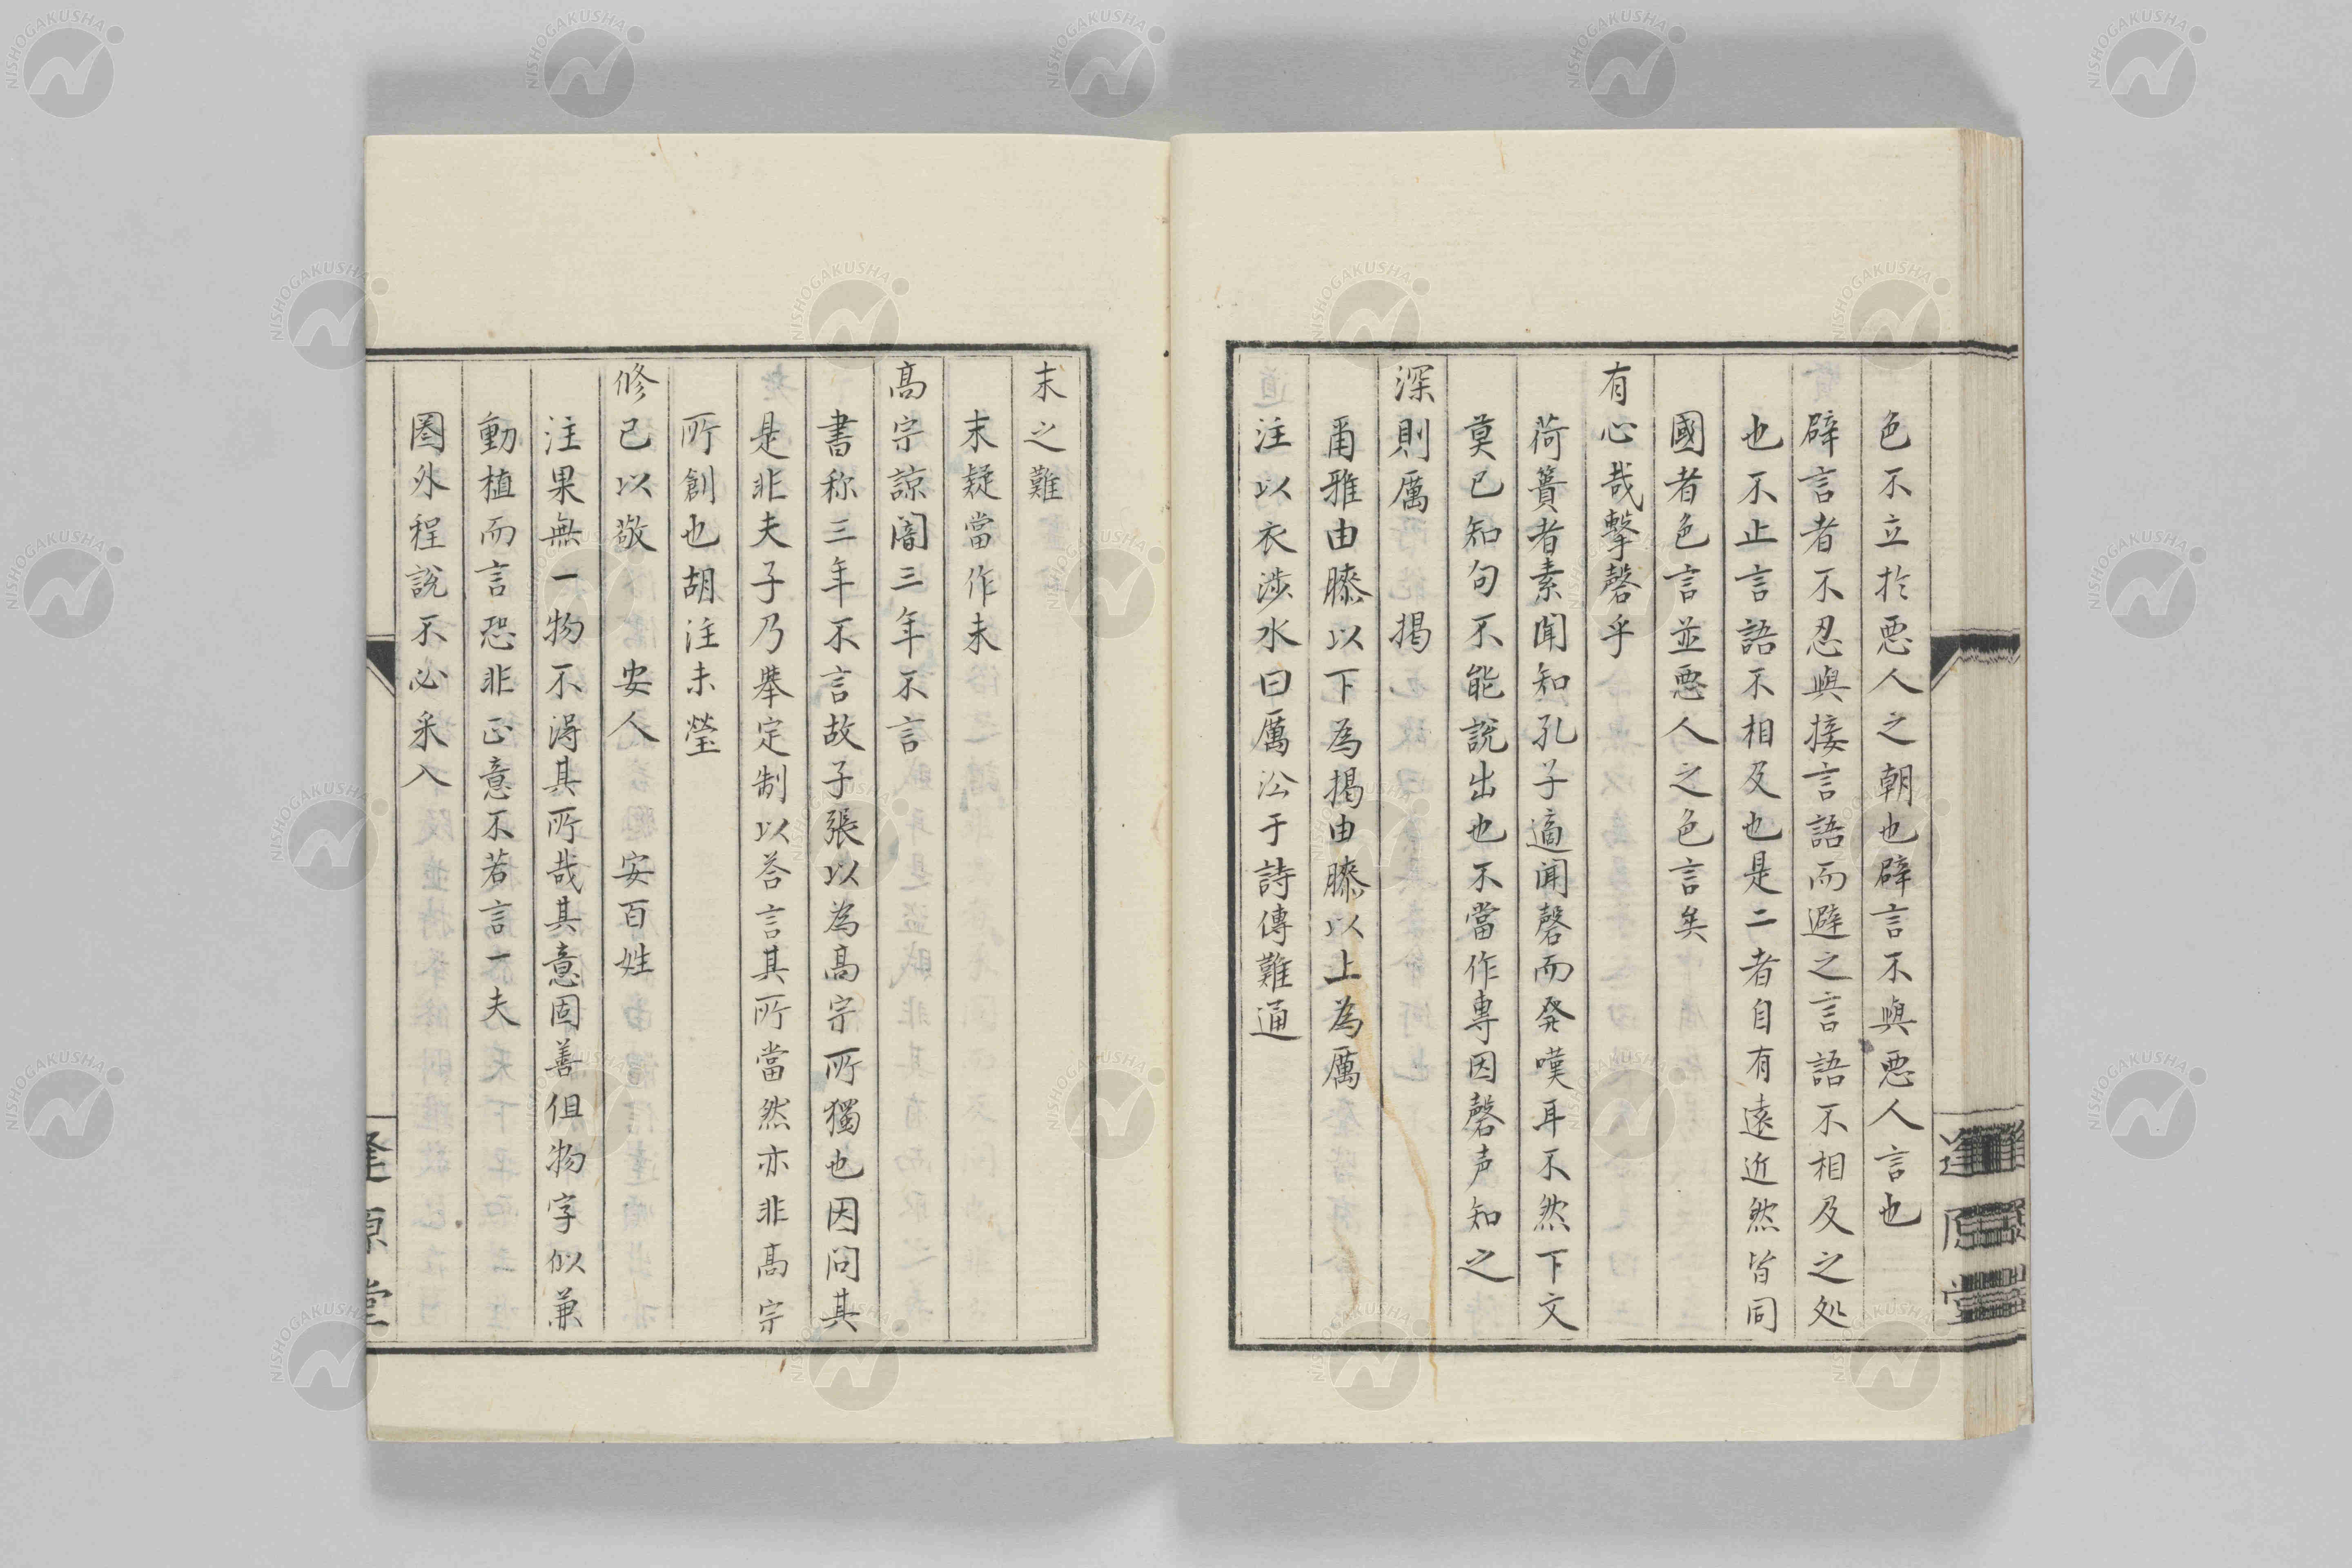 色不立於悪人之朝也辟言不與悪人言也
辟言者不忍與接言語而避之言語不相及之処
也不止言語不相及也是二者自有遠近然皆同
國者色言並悪人之色言矣
有心哉擊磬乎
荷簣者素聞知孔子適聞磬而発嘆耳不然下文
莫已知句不能說出也不當作專因磬声知之
深則厲　揭
爾雅由膝以下為揭由膝以上為厲
注以衣涉水曰厲㳂于詩傳難通
末之難
末疑當作未
高宗諒闇三年不言
書称三年不言故子張以為高宗所獨也因問其
是非夫子乃舉定制以荅言其所當然亦非高宗
所創也胡注未瑩
修己以敬　安人　安百姓
注果無一物不得其所哉其意固善但物字似兼
動植而言恐非正意不若言一夫
圏外程說不必采入
逢原堂
逢原堂
NISHOGAKUSHA